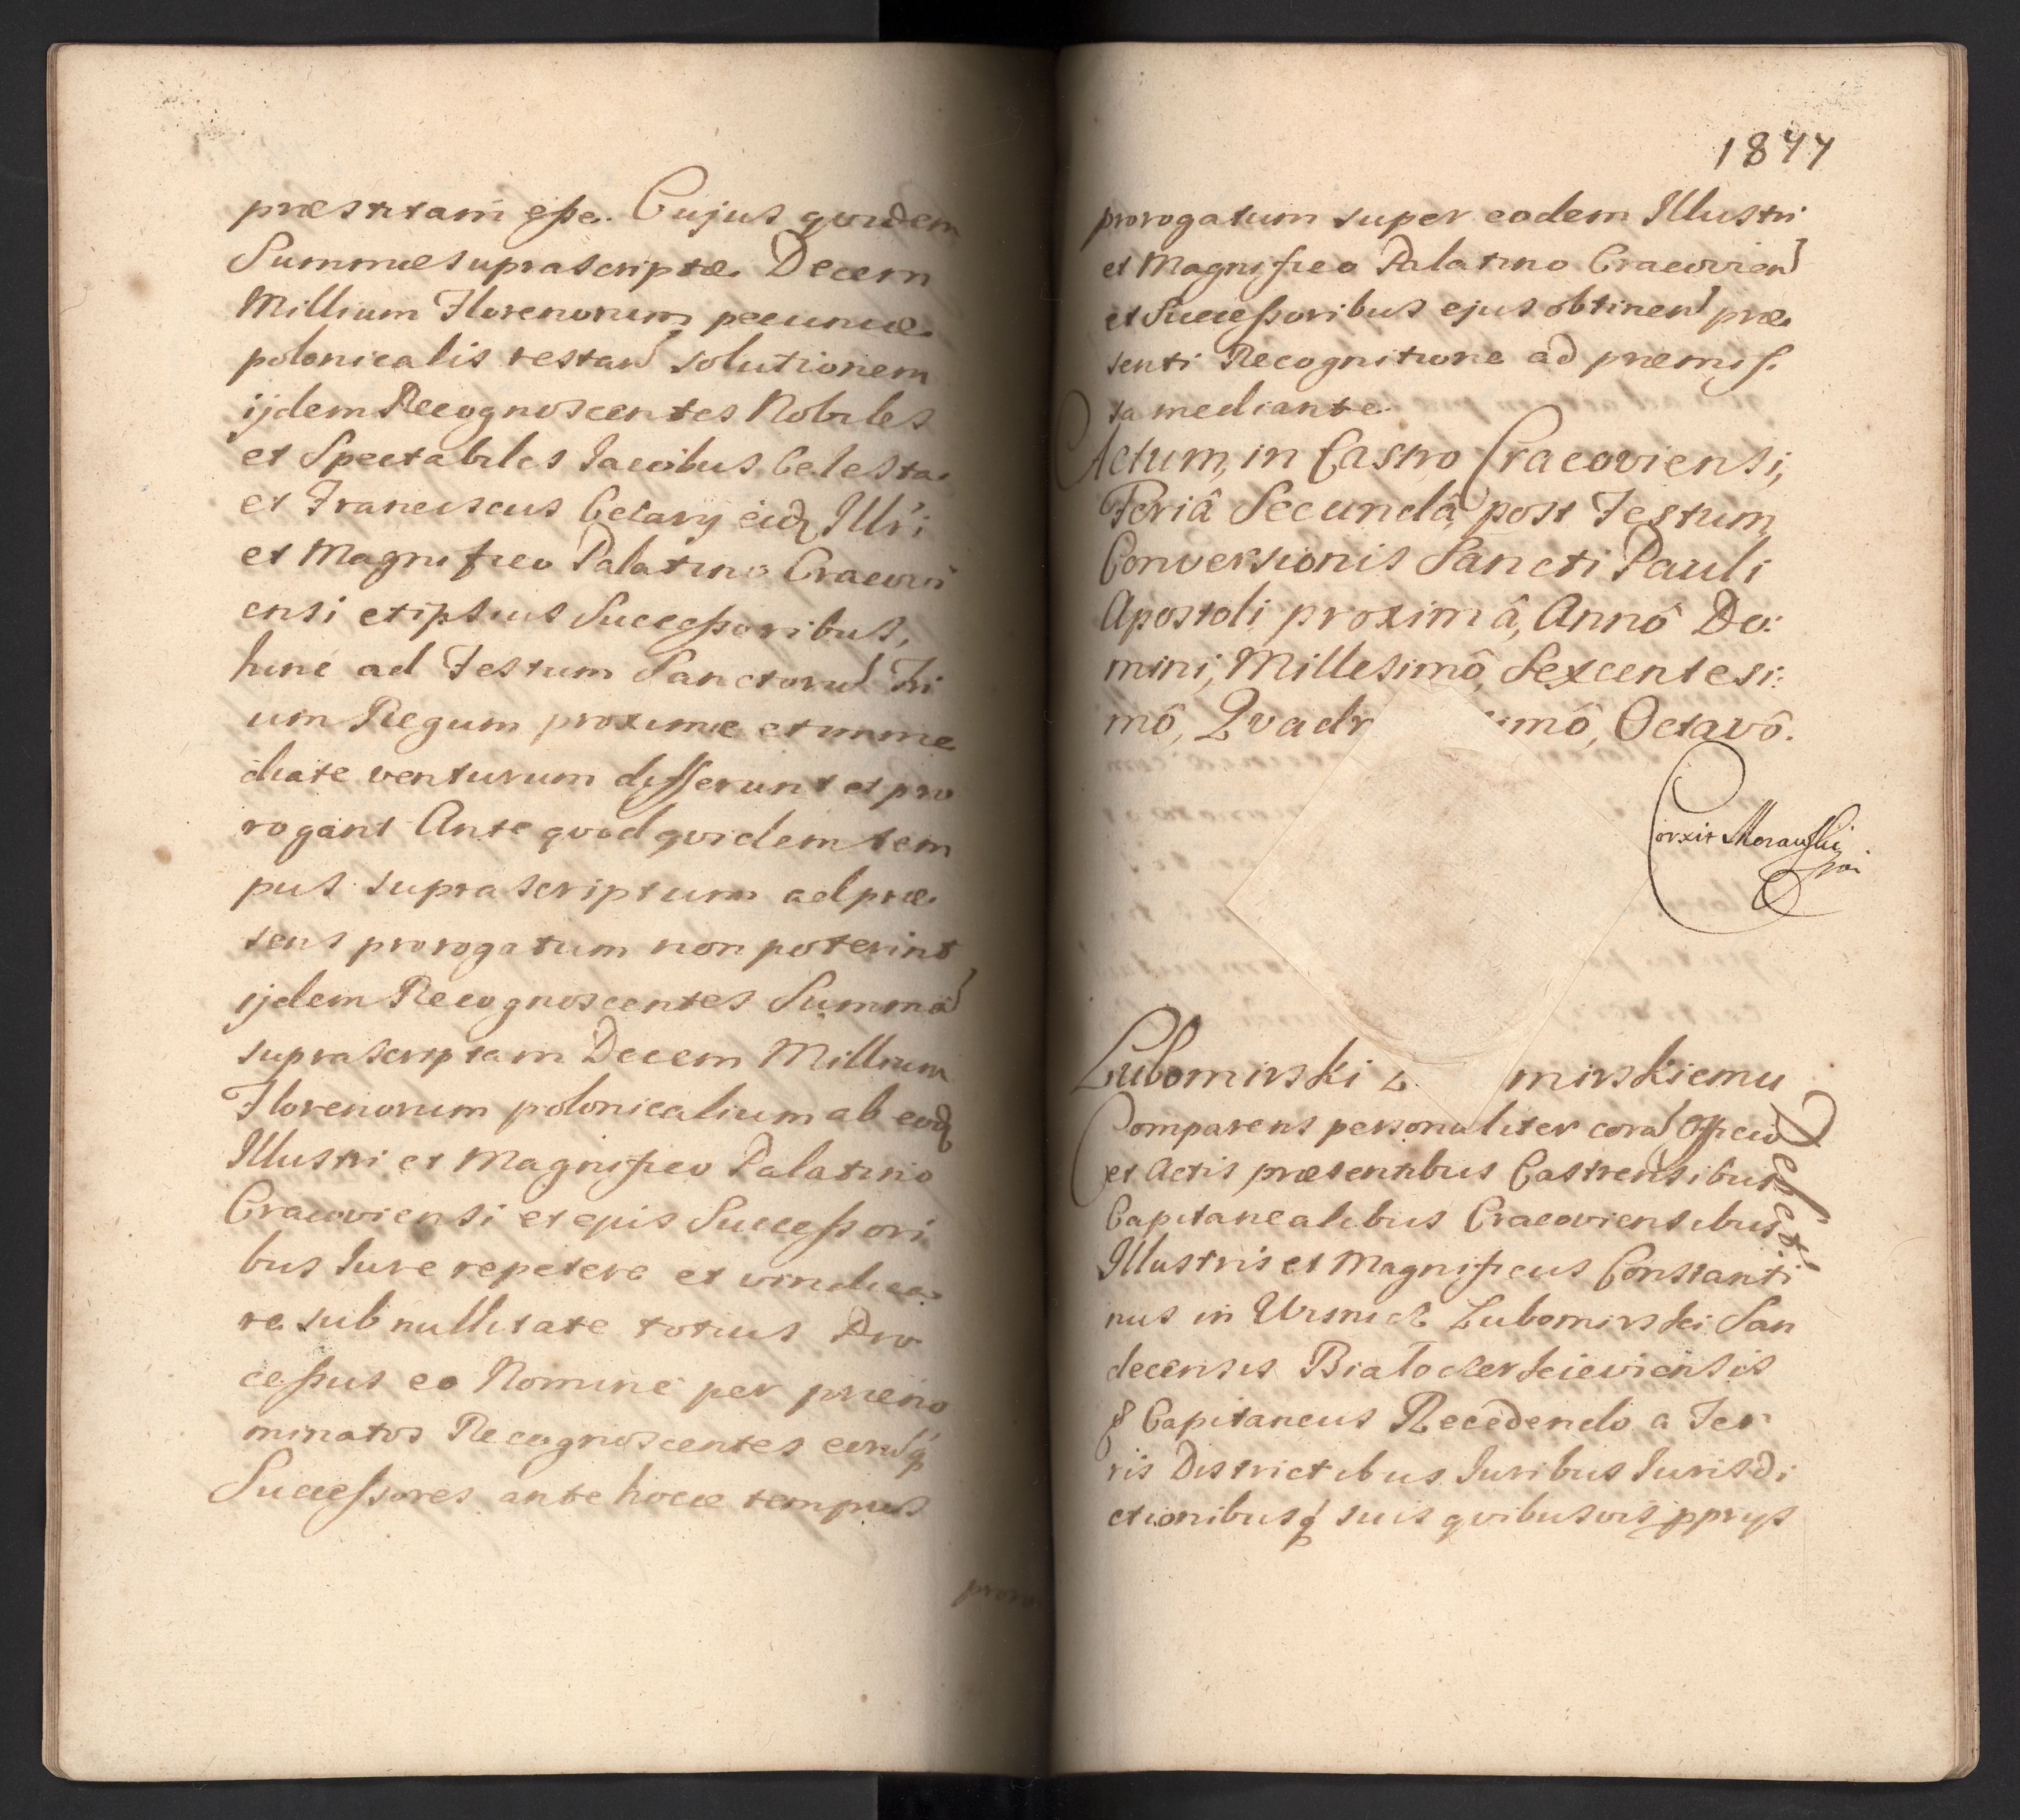 præstitam eße. Cujus qvidem
Summæ suprascriptæ Decem
Millium Florenorum pecuniæ
polonicalis restan solutionem
ijdem Recognoscentes Nobiles
et Spectabiles Iacobus Celesta
et Franciscus Cetary eidq Illri
et Magnifico Palatino Cracovi
ensi et ipsius Succeßoribus,
hinc ad Festum Sanctoru Tri
um Regum proxime et imme
diate venturum differunt et pro
rogant Ante qvod qvidem tem
pus suprascriptum ad præ
sens prorogatum non poterint
ijdem Recognoscentes Summa
suprascriptam Decem Millium
Florenorum polonicalium ab eodq
Illustri et Magnifico Palatino
Cracoviensi et ejus Succeßori
bus Iure repetere et vindica
re sub nullitate totius Pro
ceßus eo Nomine per præno
minatos Recognoscentes eorūq
Succeßores ante hocce tempus
proro
1877
prorogatum super eodem Illustri
et Magnifico Palatino Cracovien
et Succeßoribus ejus obtinen præ
senti Recognitione ad præmis
sa mediante.
Actum, in Castro Cracoviensi,
Feriâ Secundâ post Festum
Conversionis Sancti Pauli
Apostoli proximâ, Annô Do:
mini, Millesimô, Sexcentesi:
mô, Qvadr mô, Octavô.
Corxit Morawski
Lubomirski L mirskiemu
Comparens personaliter cora Officio
et Actis præsentibus Castrensibus
Capitanealibus Cracoviensibus
Illustris et Magnificus Constanti
nus in Wisnicz Lubomirski San
decensis Białocerkieviensis
& Capitaneus Recedendo a Ter
ris Districtibus Iuribus Iurisdi
ctionibusq suis qvibusvis pprijs
Desst